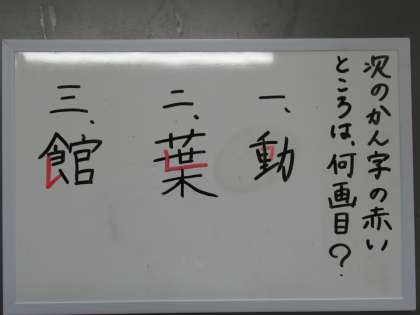 次のかん字の赤い
ところは、何画目？
一、動
二、葉
三、館